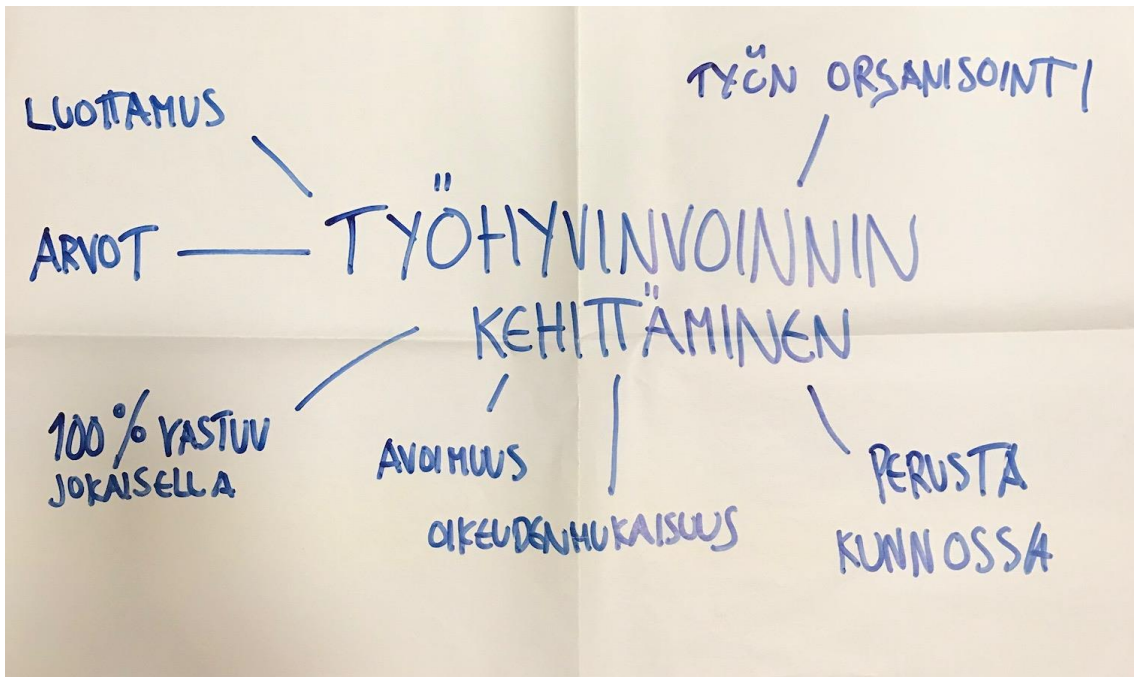 LUOTTAMUS
TYÖN ORGANISOINTI
ARVOT
TYÖHYVINVOINNIN
KEHITTÄMINEN
100% VASTUU
JOKAISELLA
AVOIMUUS
OIKEUDENMUKAISUUS
PERUSTA
KUNNOSSA